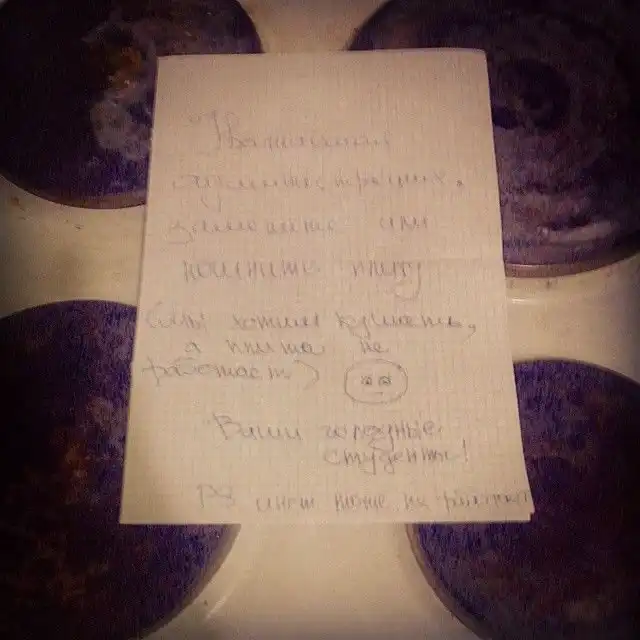 "Уважаемая
администрация,
замените или
почините плиту
(мы хотим кушать,
а плита не
работает)
Ваши голодные
студенты!
PS инт тоже не работает